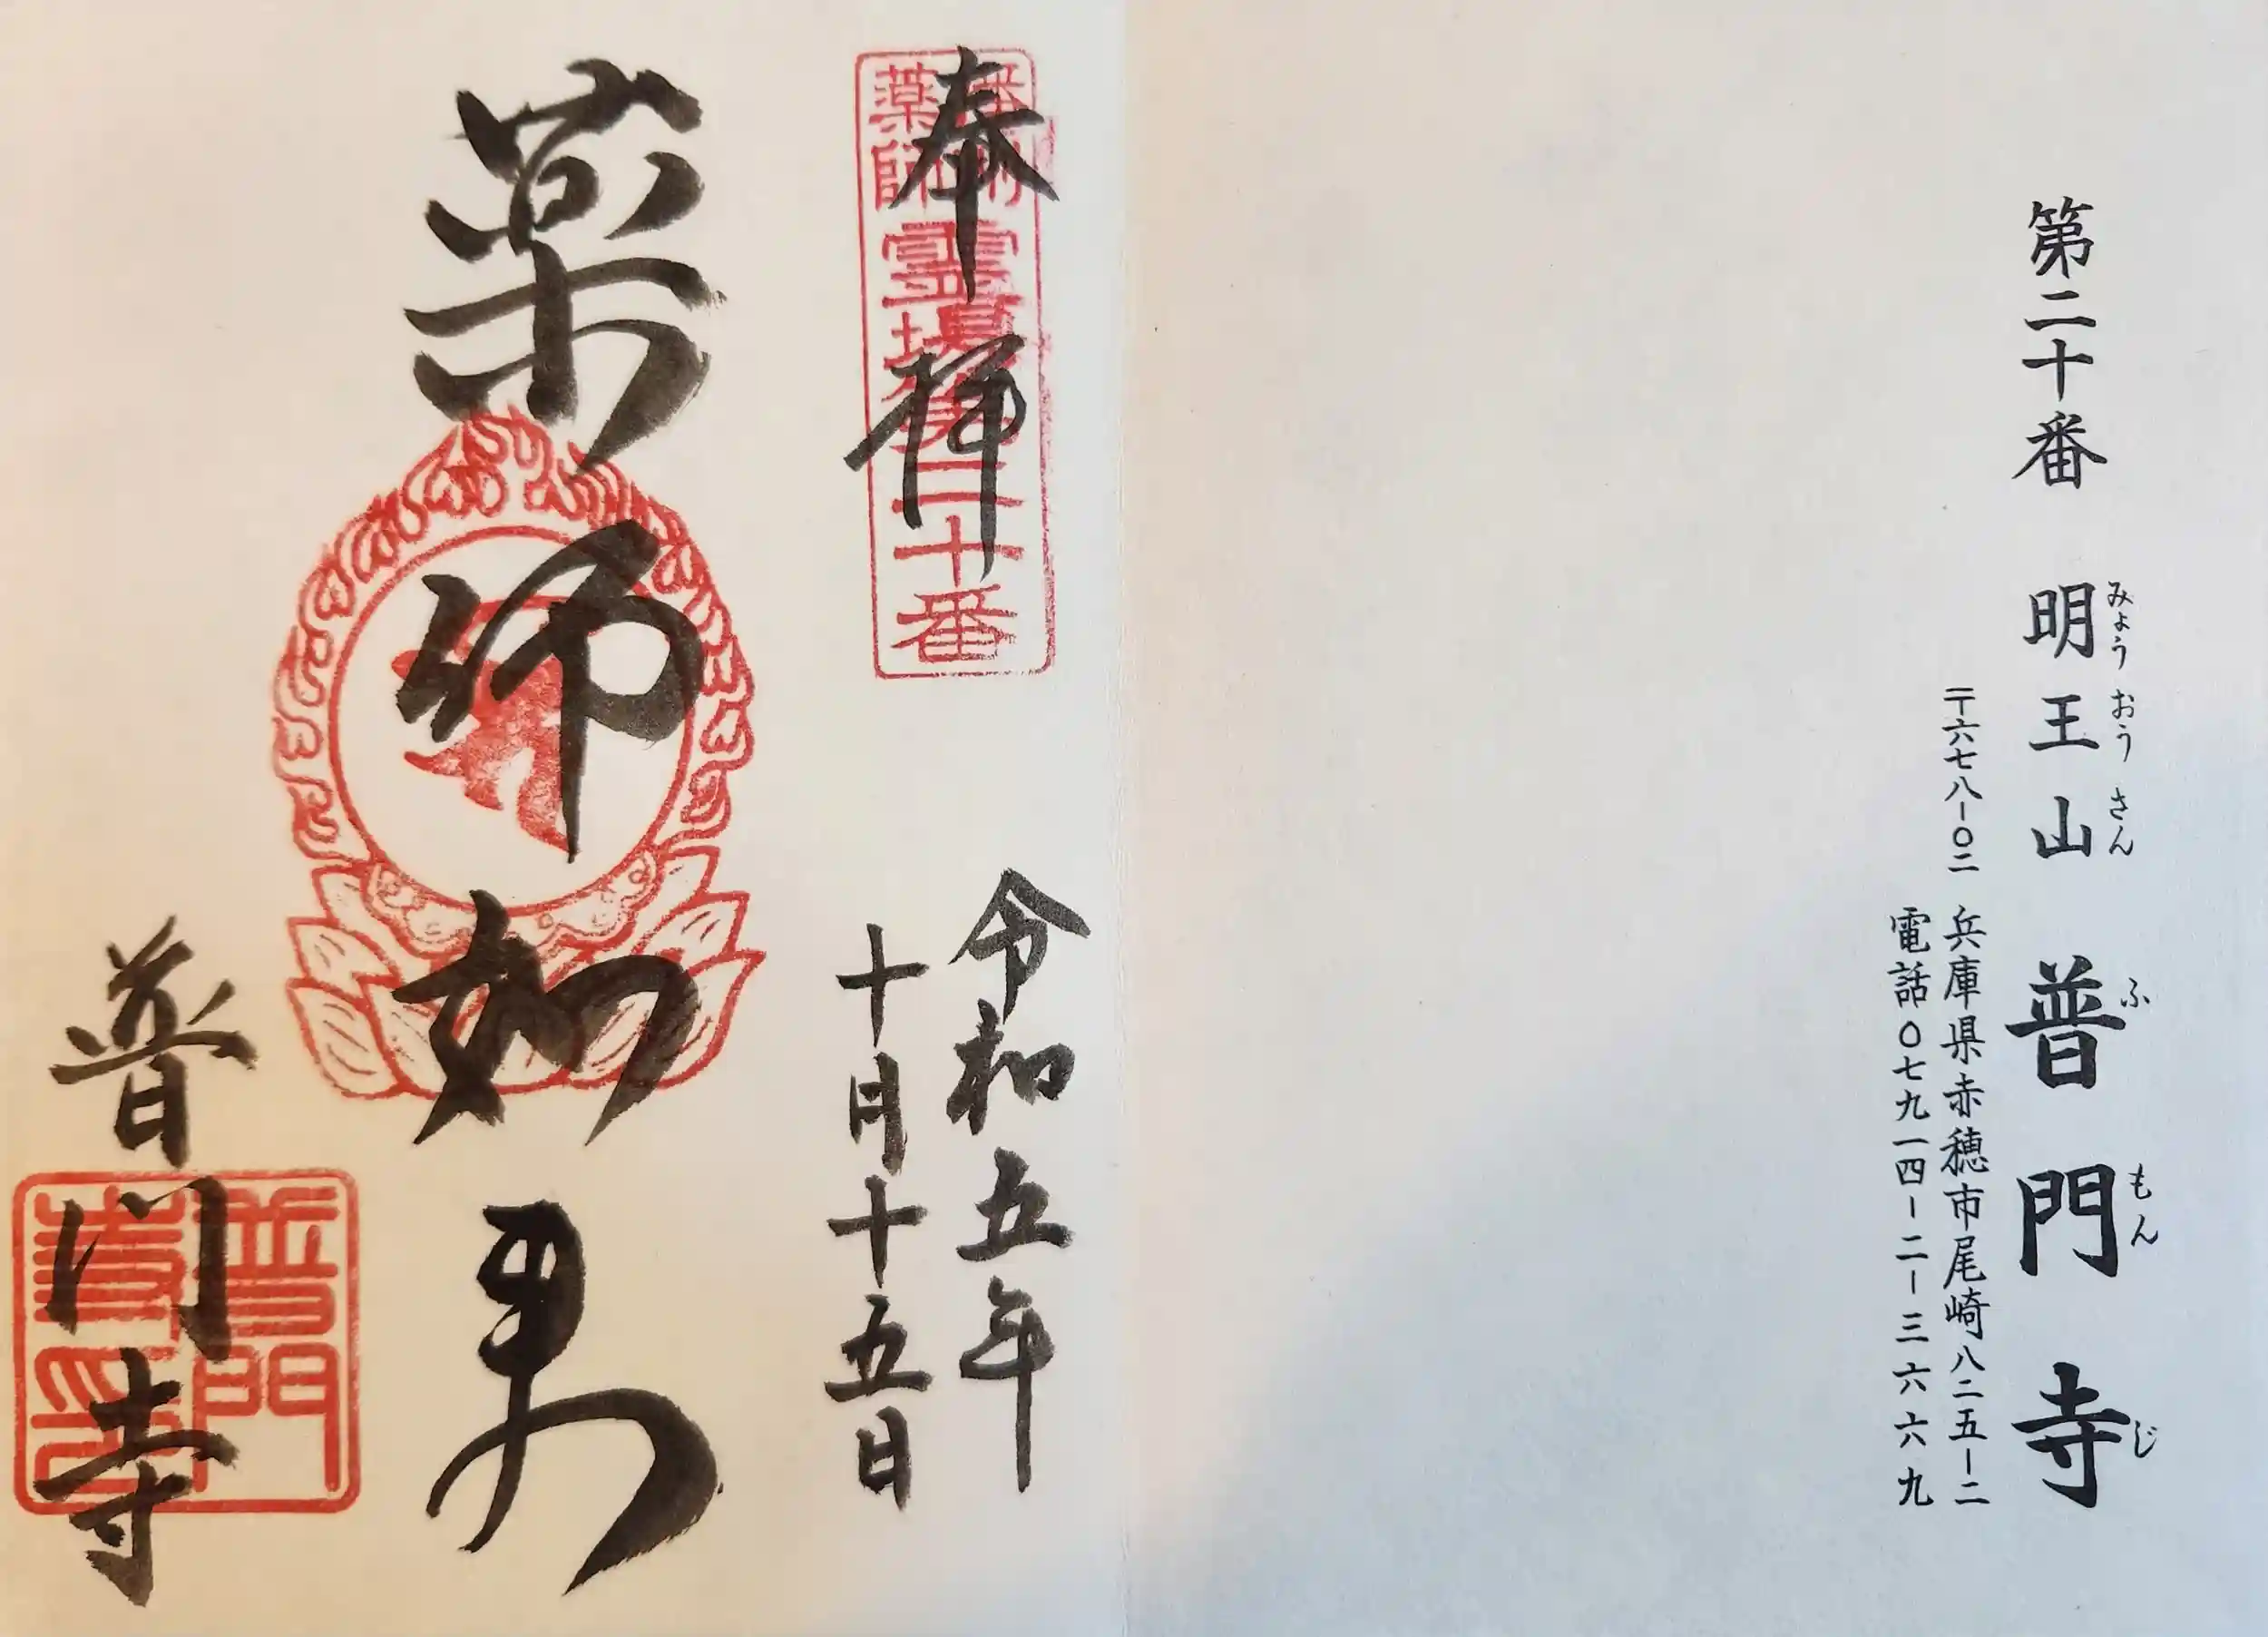 みょうおうさん ふもんじ
第二十番 明王山 普門寺
〒六七八-〇二 兵庫県赤穂市尾崎八二五-二
電話〇七九一四-二-三六六九
奉拝
播州
薬師
霊場第二十番
令和五年
十月十五日
薬師如来
普門寺
普門